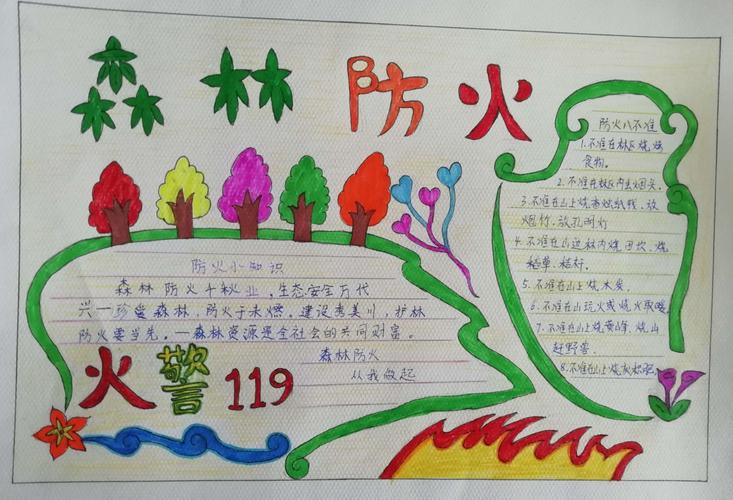 森林防火
防火小知识
森林防火千秋业,生态安全万代
兴—珍爱森林,防火于未燃。建设秀美川,护林
防火要当先。—森林资源是全社会的共同财富。
森林防火
从我做起
火警119
防火八不准
1.不准在林区烧烤
食物。
2.不准在林区内丢烟头。
3.不准在山上烧香烧纸钱,放
烟竹、放孔明灯
4.不准在山边林内烧田坎、烧
稻草、秸秆。
5.不准在山上烧木炭。
6.不准在山玩火或烧火取暖
7.不准在山上烧黄蜂,烧山
赶野兽。
8.不准在山上烧灰积肥。